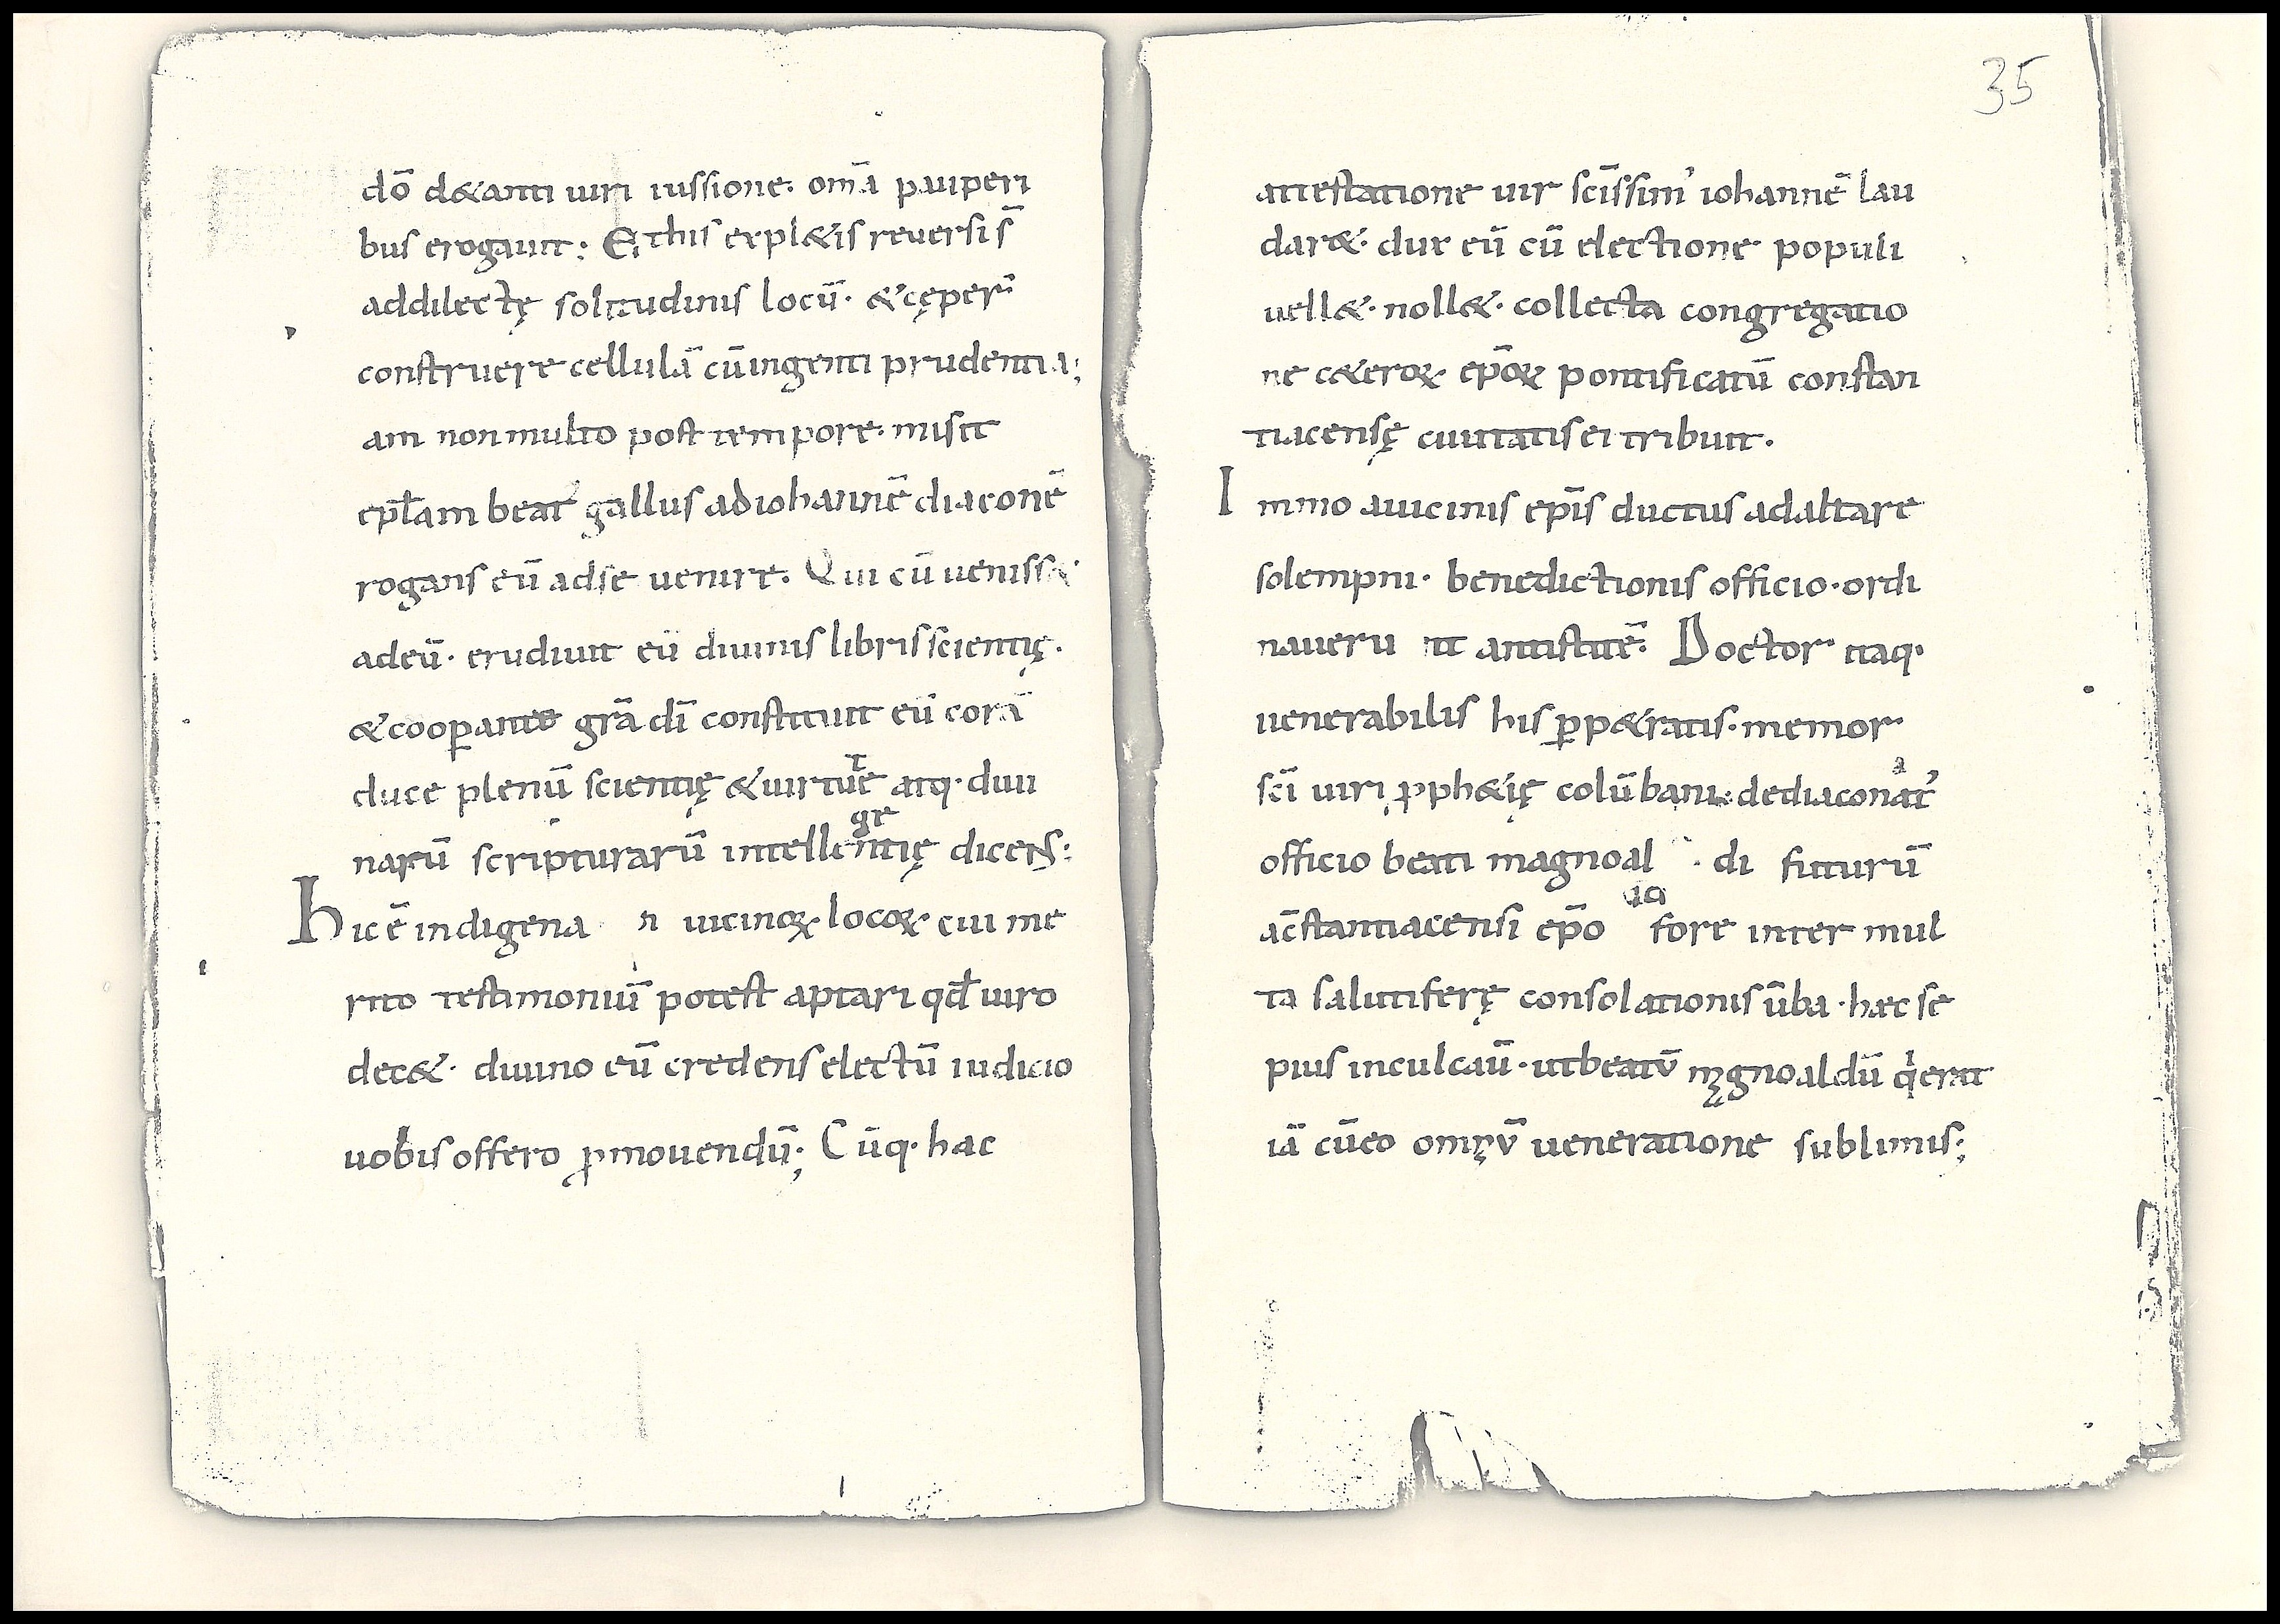 dō d&anti uiri iussione. om̄a pauperi
bus erogauit: Et his expl&is reuersis̄
addilectę solitudinis locū. &cęper̄
construere cellulā cūingenti prudentia;
am nonmulto post tempore. misit
epl̄am beat gallus adiohannē diaconē
rogans eū adse uenire. Qui cū ueniss&
adeū. erudiuit eū diuinis libris scientię.
&cooꝑante grā dī constituit eū corā
duce plenū scientię &uirtutē atq. diui
narū scripturarū intellegentię dicens:
Hic ē indigena n uicinoꝝ locoꝝ cui me
rito testimoniū potest aptari qđ uiro
dec&. diuino eū credens electū iudicio
uobis offero ꝓmouendū; Cūq. hac
35
attestatione uir scīssim' iohannē lau
dar&. dux eū cū electione populi
uell&. noll&. collecta congregatio
ne c&eroꝝ ep̄oꝝ pontificatū constan
tiacensę ciuitatis ei tribuit.
Immo auicinis ep̄is ductus adaltare
solempni. benedictionis officio. ordi
naueru nt antistitē. Doctor itaq.
uenerabilis his ꝑp&ratis. memor
scī uiri ꝓph&ię colūbani. dediaconat'
officio beati magnoal di futurū
ac̄stantiacensi ep̄o ia fore inter mul
ta salutiferę consolationis ūba. hec se
pius inculcaū. utbeatū mągnoaldū qi erat
iā cūeo omęū ueneratione sublimis;